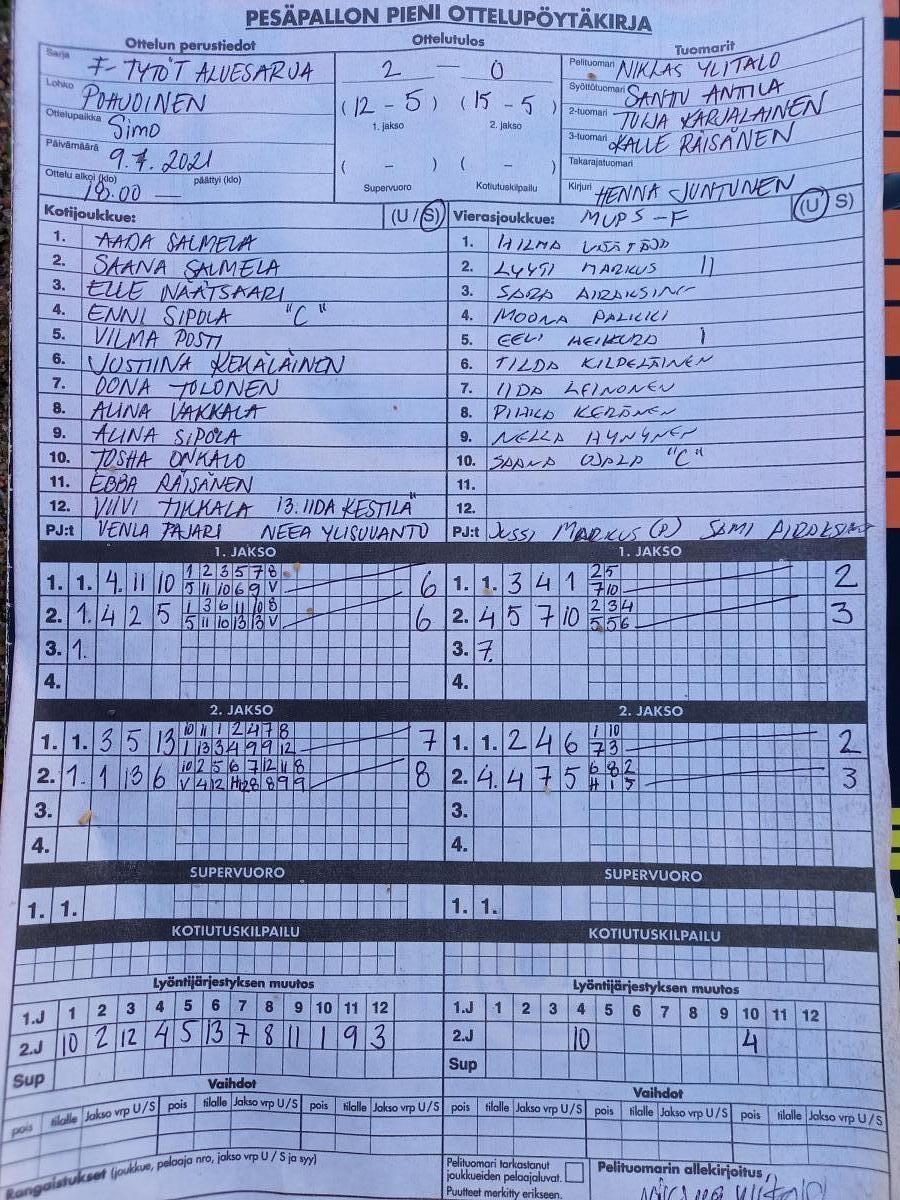 PESÄPALLON PIENI OTTELUPÖYTÄKIRJA
Ottelun perustiedot
Sarja F-TYTÖT ALUESARJA
Lohko POHJOINEN
Ottelupaikka Simo
Päivämäärä 9.7.2021
Ottelu alkoi (klo) 18.00 — päättyi (klo)
Ottelutulos
2 — 0
(12 - 5) (15 - 5)
1. jakso 2. jakso
( - ) ( - )
Supervuoro Kotiutuskilpailu
Tuomarit
Pelituomari NIKLAS YLITALO
Syöttötuomari SANTU ANTTILA
2-tuomari TUIJA KARJALAINEN
3-tuomari KALLE RÄISÄNEN
Takarajatuomari
Kirjuri HENNA JUNTUNEN
Kotijoukkue: (U/S)
1. AADA SALMELA
2. SAANA SALMELA
3. ELLE NÄÄTSAARI
4. ENNI SIPOLA "C"
5. VILMA POSTI
6. JUSTIINA KEKÄLÄINEN
7. OONA TOLONEN
8. ALINA VAKKALA
9. ALINA SIPOLA
10. TOSHA ONKALO
11. EBBA RÄISÄNEN
12. VIIVI TIKKALA 13. IIDA KESTILÄ
PJ:t VENLA PAJARI NEEA YLISUVANTO
Vierasjoukkue: MUPS-F (U S)
1. HILMA
2. LYYTI MARKUS II
3. SARA AIRAKSINE
4. MOONA PALIKKI
5. EELI HEIKURA I
6. TILDA KILPELÄINEN
7. IIDA LEINONEN
8. PIHKA KERÄNEN
9. NELLA HYNYNEN
10. SAANA OJALA "C"
11.
12.
PJ:t JUSSI MARKUS (P) SAMI AIRAKSINE
1. JAKSO
1. 1. 4 11 10 1 2 3 5 7 8 6
5 11 10 6 9 V
2. 1. 4 2 5 1 3 6 11 10 8 6
5 11 10 13 13 V
3. 1.
4.
1. JAKSO
1. 1. 3 4 1 2 5 2
7 10
2. 4 5 7 10 2 3 4 3
5 5 6
3. 7.
4.
2. JAKSO
1. 1. 3 5 13 10 11 1 2 4 7 8 7
1 13 3 4 9 9 12
2. 1. 1 13 6 10 2 5 6 7 12 11 8 8
V 4 12 H 12 8 8 9 9
3.
4.
2. JAKSO
1. 1. 2 4 6 1 10 2
7 3
2. 4. 4 7 5 6 8 2 3
H 1 5
3.
4.
SUPERVUORO
1. 1.
SUPERVUORO
1. 1.
KOTIUTUSKILPAILU
KOTIUTUSKILPAILU
Lyöntijärjestyksen muutos
1.J 1 2 3 4 5 6 7 8 9 10 11 12
2.J 10 2 12 4 5 13 7 8 11 1 9 3
Sup
Lyöntijärjestyksen muutos
1.J 1 2 3 4 5 6 7 8 9 10 11 12
2.J 10 4
Sup
Vaihdot
pois tilalle Jakso vrp U/S pois tilalle Jakso vrp U/S pois tilalle Jakso vrp U/S
Vaihdot
pois tilalle Jakso vrp U/S pois tilalle Jakso vrp U/S pois tilalle Jakso vrp U/S
Rangaistukset (joukkue, pelaaja nro, jakso vrp U/S ja syy)
Pelituomari tarkastanut
joukkueiden pelaajaluvat.
Puutteet merkitty erikseen.
Pelituomarin allekirjoitus